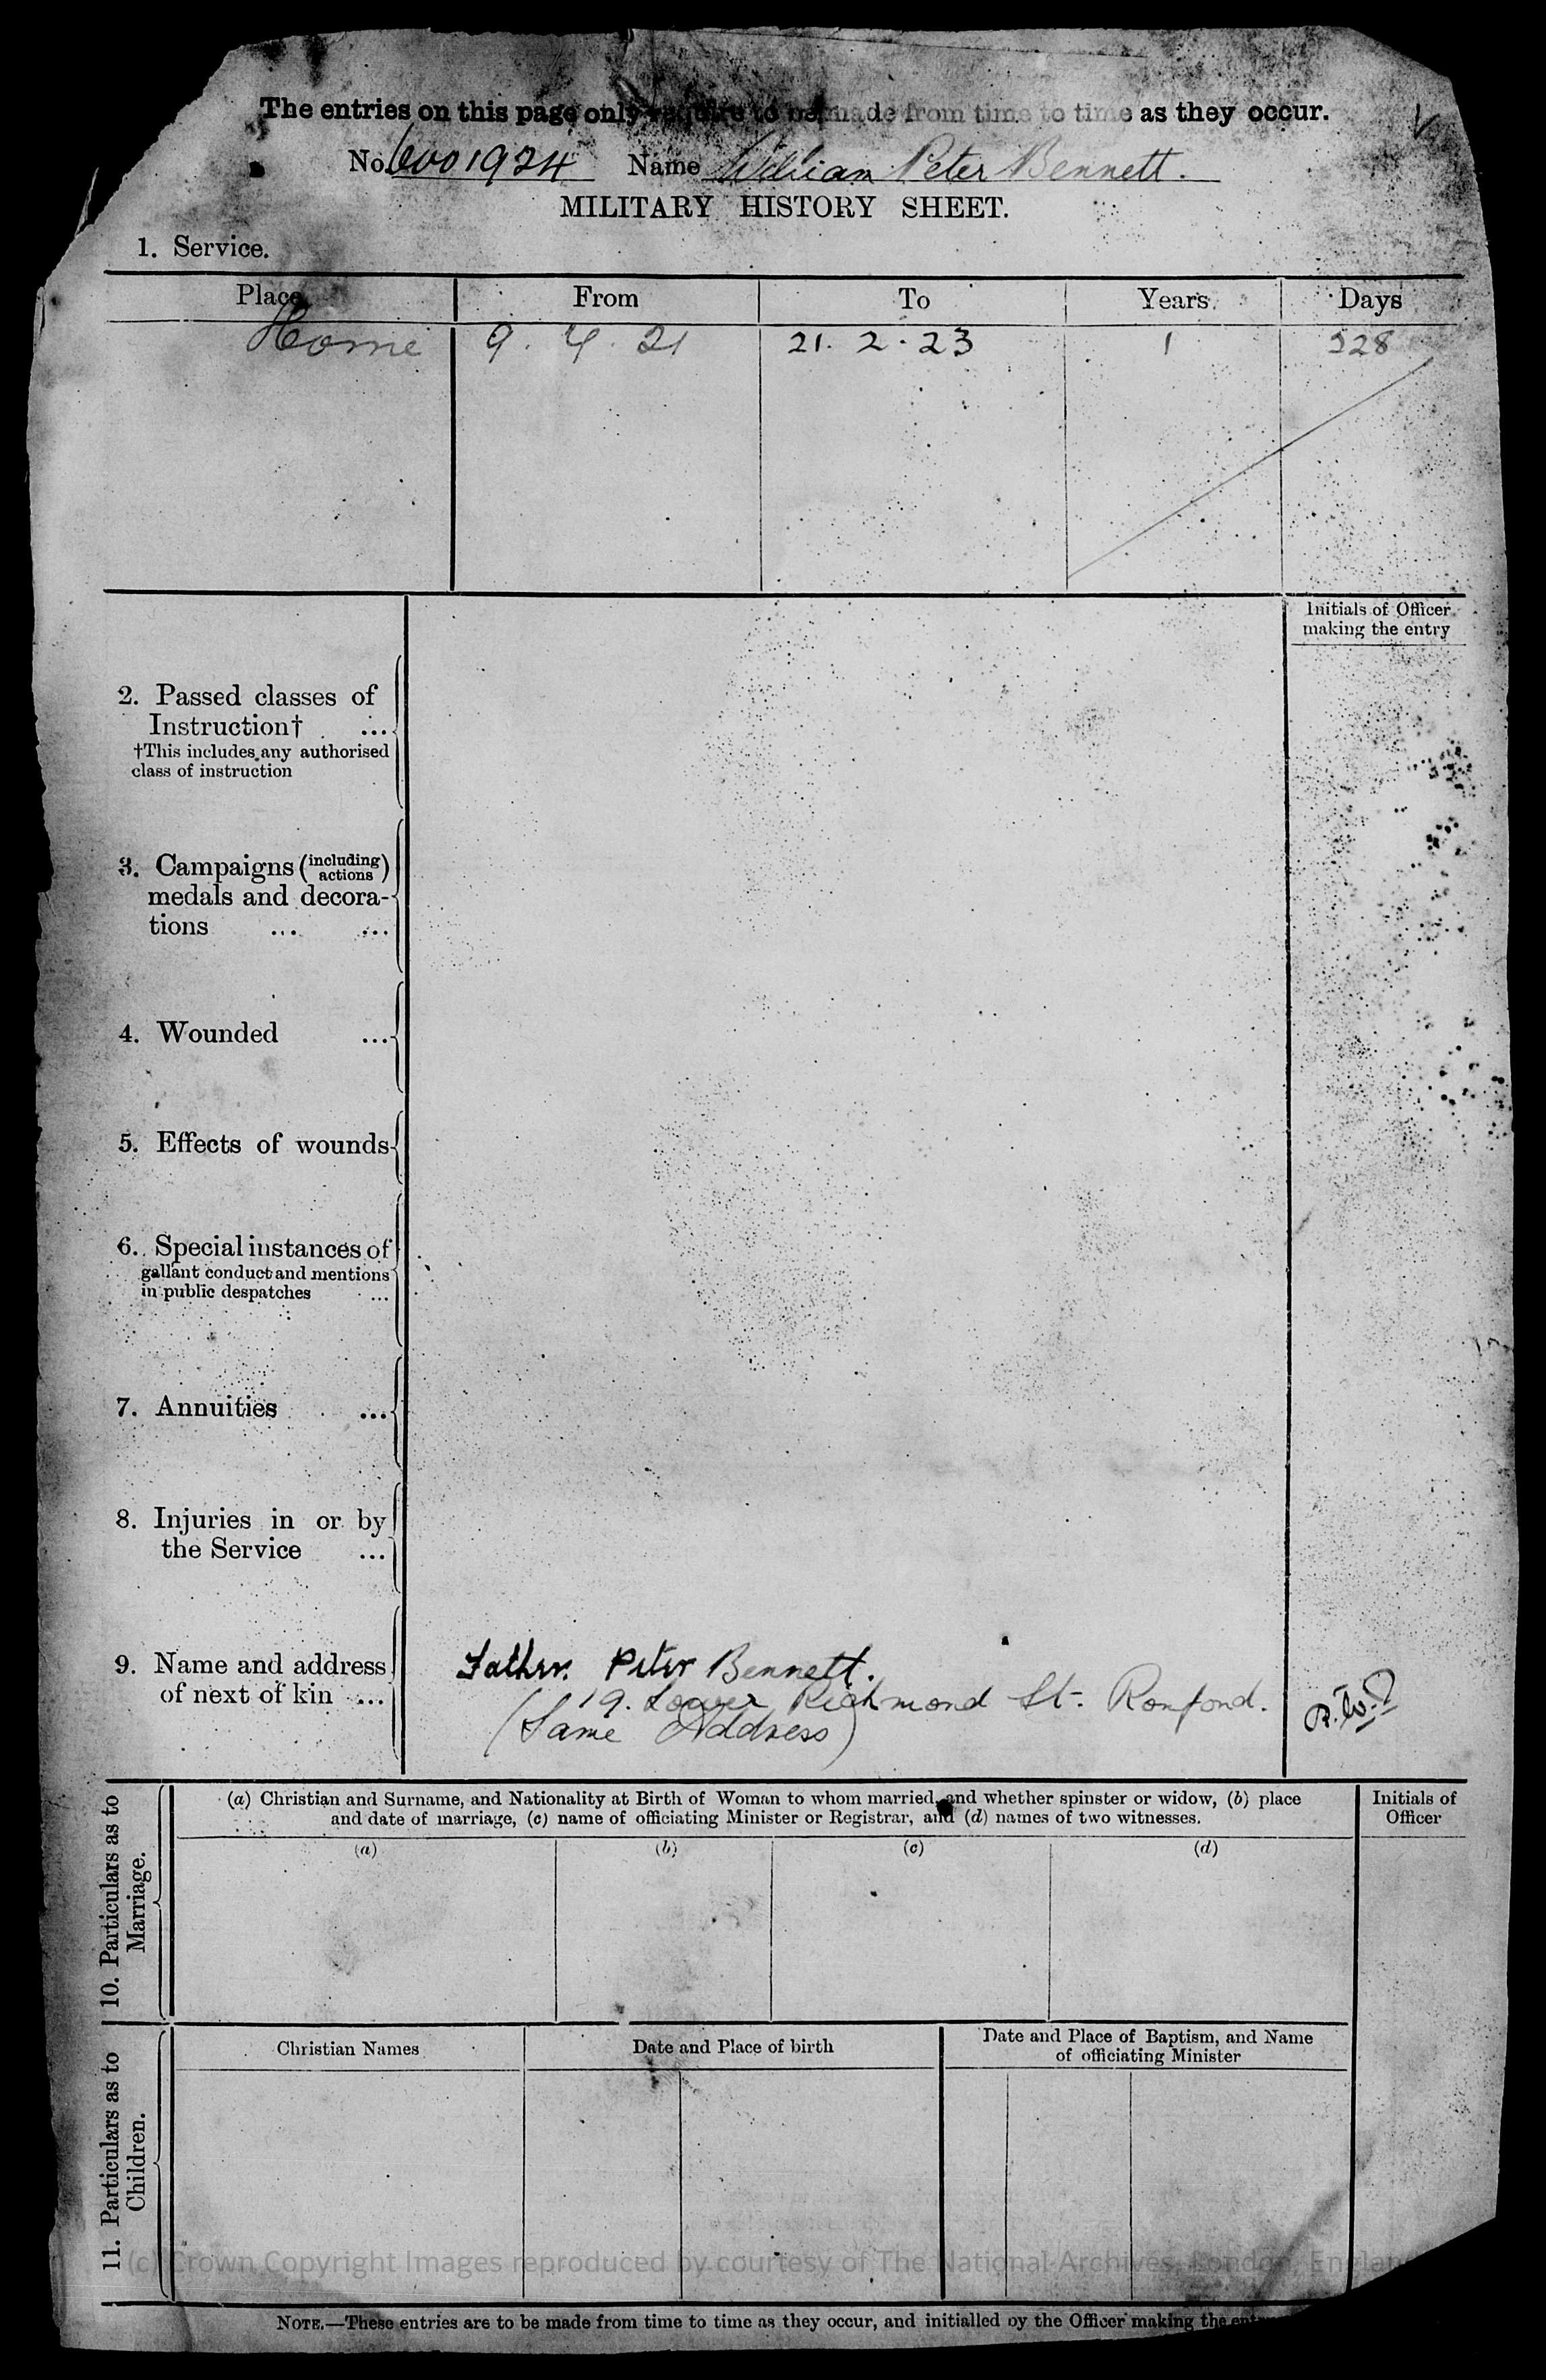 The entries on this page only require to be made from time to time as they occur.
No. 6001924 Name William Peter Bennett.
MILITARY HISTORY SHEET.
1. Service.
Place From To Years Days
Home 9. 4. 21 21. 2. 23 1
Initials of Officer making the entry
2. Passed classes of
Instruction† ...
†This includes any authorised
class of instruction
3. Campaigns (including actions)
medals and decora-
tions ... ...
4. Wounded ...
5. Effects of wounds
6. Special instances of
gallant conduct and mentions
in public despatches ...
7. Annuities ...
8. Injuries in or by
the Service ...
9. Name and address
of next of kin ...
Father. Peter Bennett.
19. Lower Richmond St. Romford.
(Same Address)
10. Particulars as to
Marriage.
(a) Christian and Surname, and Nationality at Birth of Woman to whom married, and whether spinster or widow, (b) place
and date of marriage, (c) name of officiating Minister or Registrar, and (d) names of two witnesses.
Initials of
Officer
(a) (b) (c) (d)
11. Particulars as to
Children.
Christian Names Date and Place of birth
Date and Place of Baptism, and Name
of officiating Minister
(c) Crown Copyright Images reproduced by courtesy of The National Archives, London, England
NOTE.—These entries are to be made from time to time as they occur, and initialled by the Officer making the